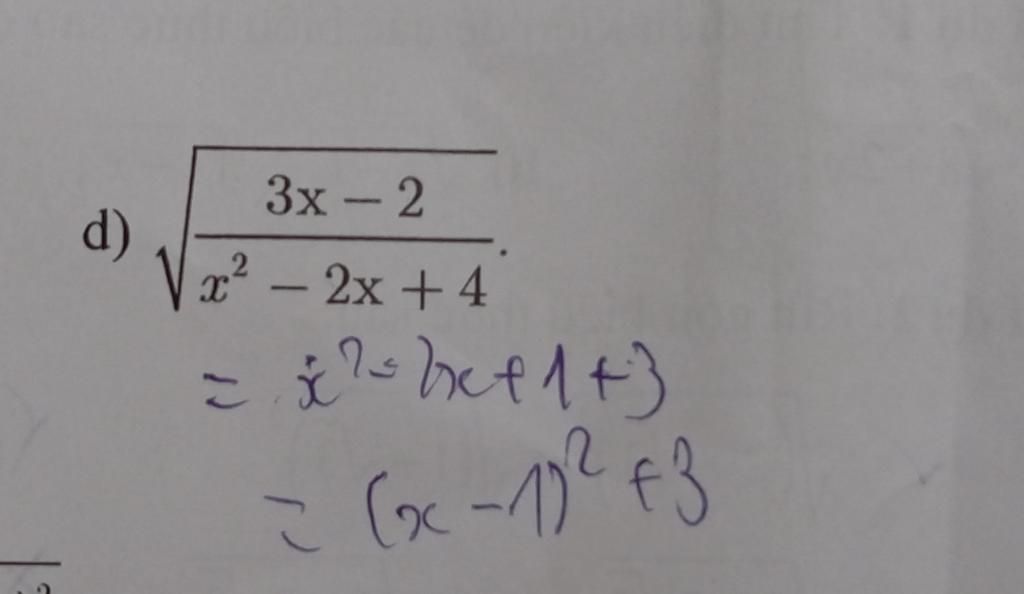 d) √((3x − 2)/(x² − 2x + 4)).
= x² - 2x + 1 + 3
= (x - 1)² + 3